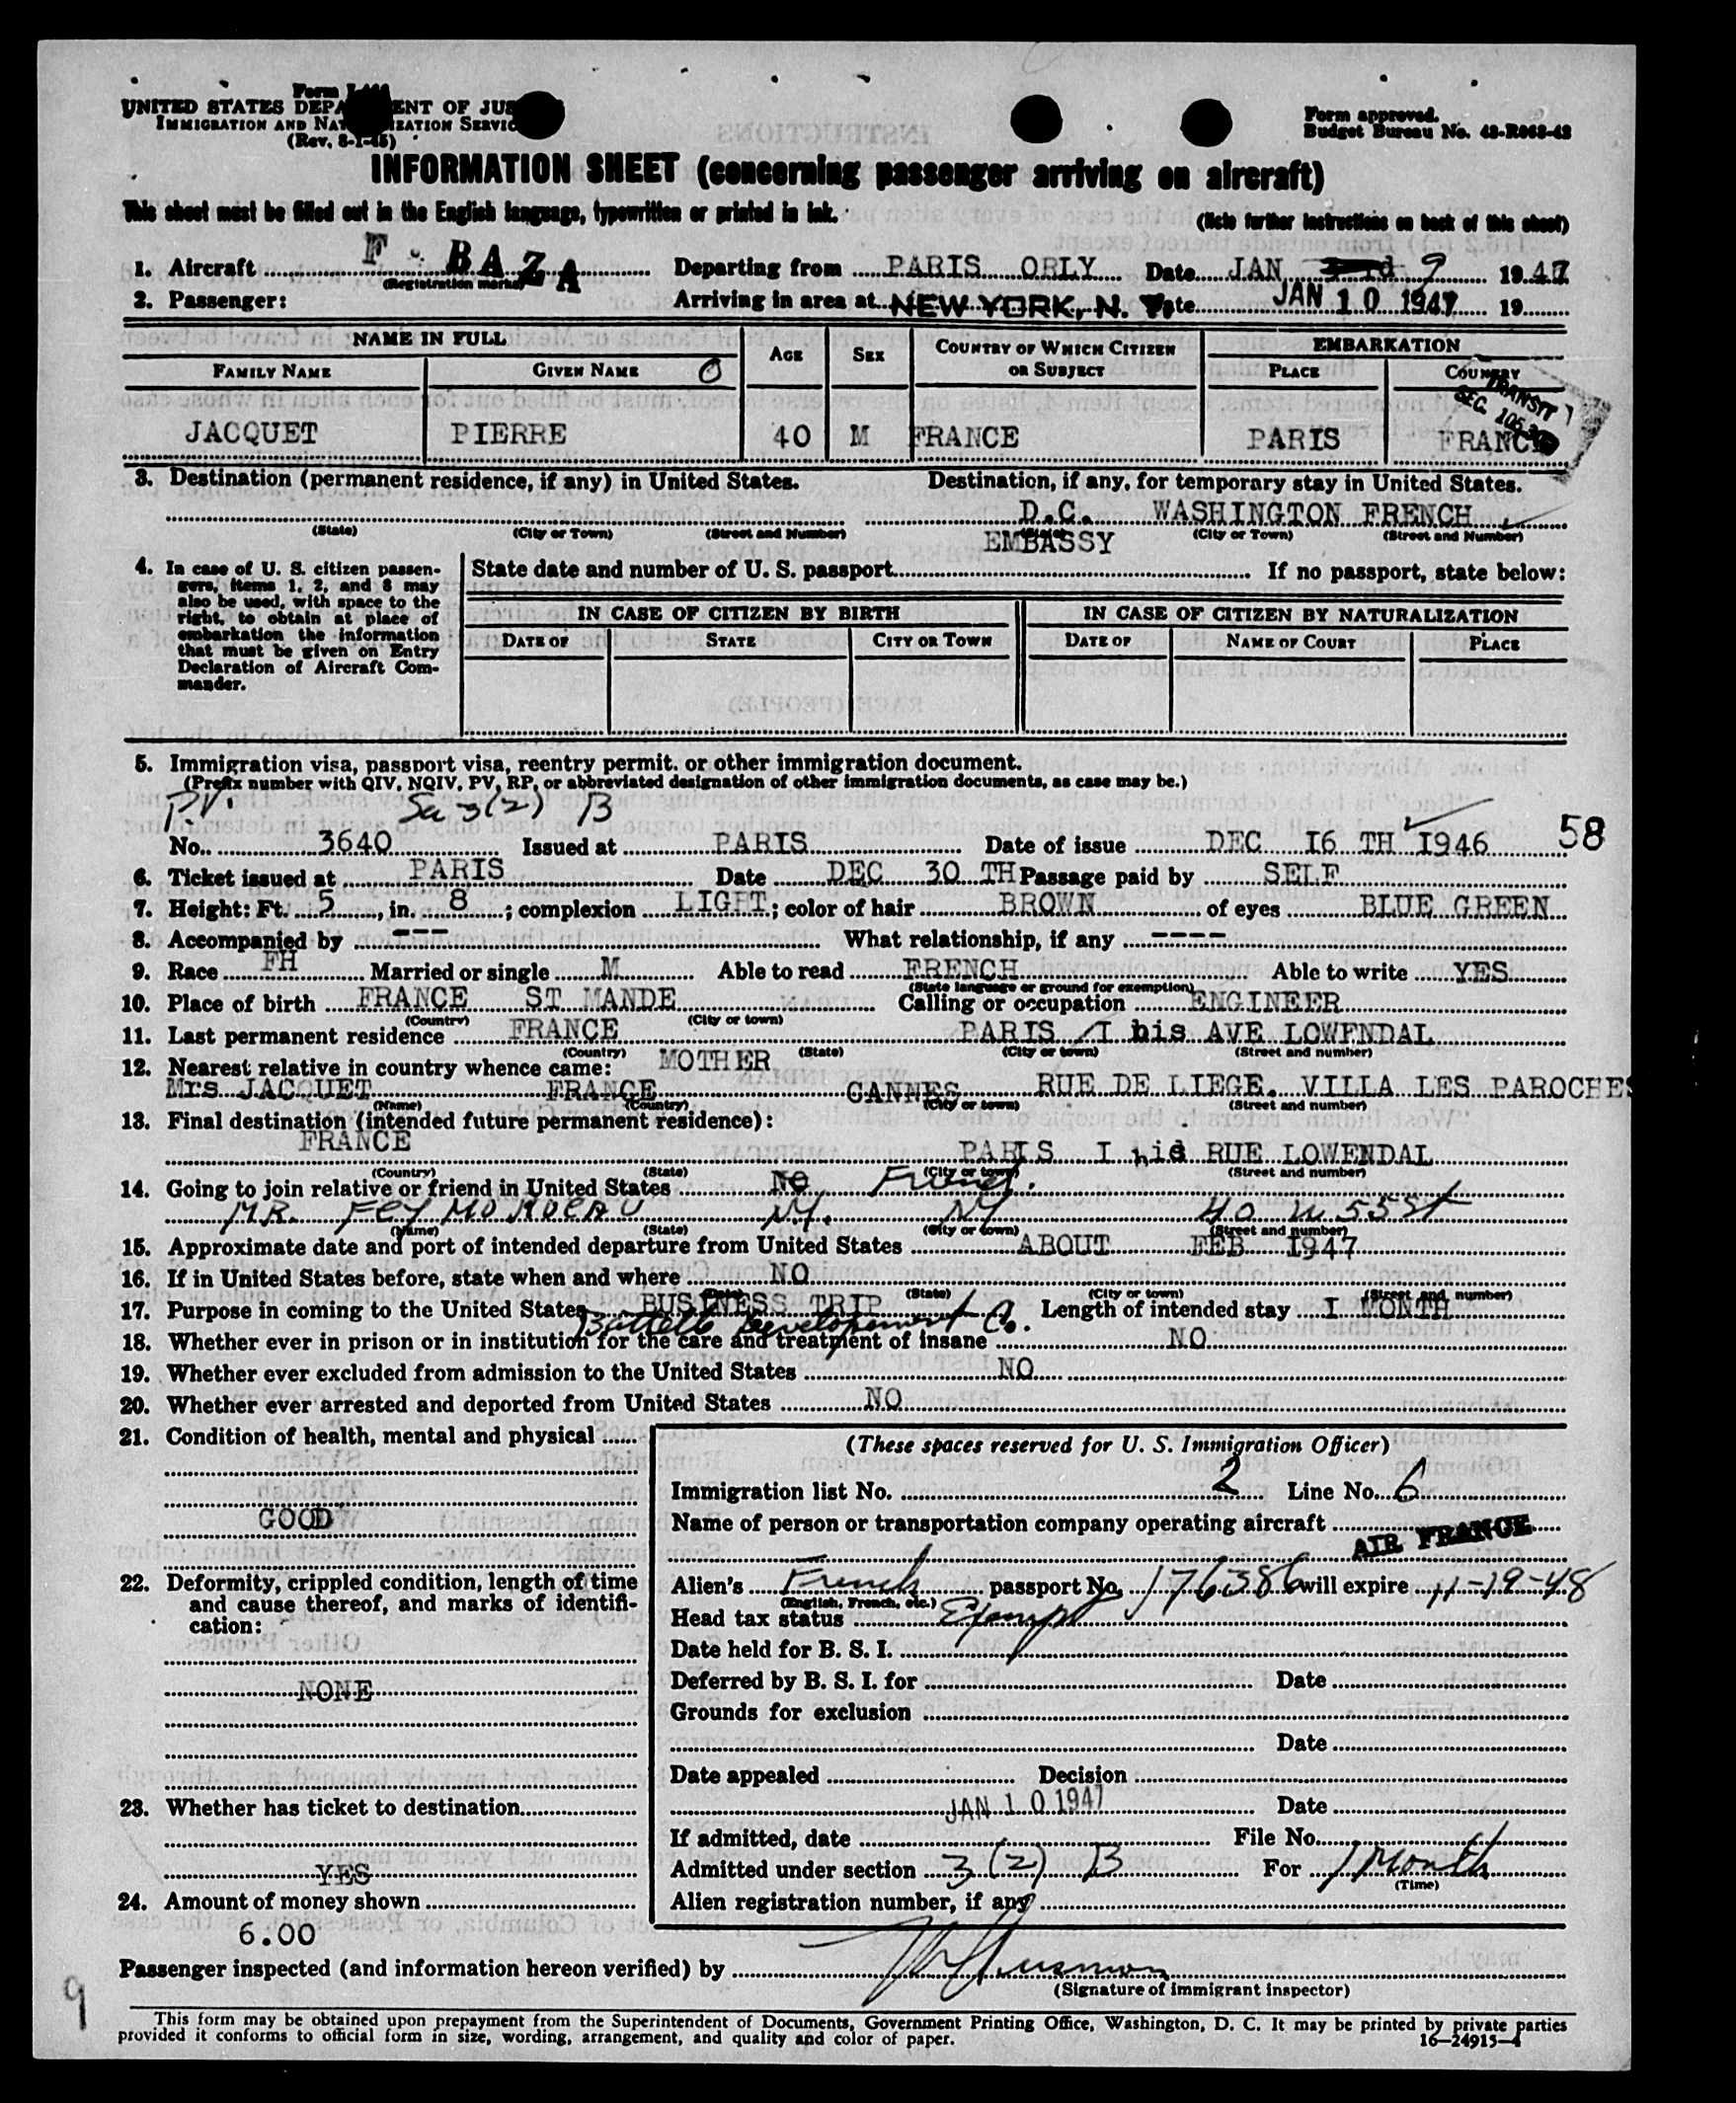 Form I-466
UNITED STATES DEPA ENT OF JUS
IMMIGRATION AND NAT IZATION SERVIC
(Rev. 8-1-45)
Form approved.
Budget Bureau No. 43-R063-42
INFORMATION SHEET (concerning passenger arriving on aircraft)
This sheet must be filled out in the English language, typewritten or printed in ink.
(Note further instructions on back of this sheet)
1. Aircraft F - BAZA Departing from PARIS ORLY Date JAN 3rd 9 1947
(Registration marks)
2. Passenger: Arriving in area at NEW YORK, N. Y. Date JAN 10 1947 19
NAME IN FULL AGE SEX COUNTRY OF WHICH CITIZEN OR SUBJECT EMBARKATION
FAMILY NAME GIVEN NAME O PLACE COUNTRY
TRANSIT
SEC. 105.3
JACQUET PIERRE 40 M FRANCE PARIS FRANCE
3. Destination (permanent residence, if any) in United States. Destination, if any, for temporary stay in United States.
D.C. WASHINGTON FRENCH
(State) (City or Town) (Street and Number) (State) (City or Town) (Street and Number)
EMBASSY
4. In case of U. S. citizen passengers, items 1, 2, and 8 may
also be used, with space to the
right, to obtain at place of
embarkation the information
that must be given on Entry
Declaration of Aircraft Commander.
State date and number of U. S. passport If no passport, state below:
IN CASE OF CITIZEN BY BIRTH IN CASE OF CITIZEN BY NATURALIZATION
DATE OF STATE CITY OR TOWN DATE OF NAME OF COURT PLACE
5. Immigration visa, passport visa, reentry permit, or other immigration document.
(Prefix number with QIV, NQIV, PV, RP, or abbreviated designation of other immigration documents, as case may be.)
P.V. Sec 3(2) B
No. 3640 Issued at PARIS Date of issue DEC I6 TH I946 58
6. Ticket issued at PARIS Date DEC 30 TH Passage paid by SELF
7. Height: Ft. 5, in. 8; complexion LIGHT; color of hair BROWN of eyes BLUE GREEN
8. Accompanied by --- What relationship, if any ----
9. Race FH Married or single M Able to read FRENCH Able to write YES
(State language or ground for exemption)
10. Place of birth FRANCE ST MANDE Calling or occupation ENGINEER
(Country) (City or town)
11. Last permanent residence FRANCE PARIS /I bis AVE LOWENDAL
(Country) (State) (City or town) (Street and number)
12. Nearest relative in country whence came: MOTHER
Mrs JACQUET FRANCE CANNES RUE DE LIEGE. VILLA LES PAROCHES
(Name) (Country) (City or town) (Street and number)
13. Final destination (intended future permanent residence):
FRANCE PARIS I bis RUE LOWENDAL
(Country) (State) (City or town) (Street and number)
14. Going to join relative or friend in United States No Friend.
MR. N.Y. NY 40 W 55 St
(Name) (State) (City or town) (Street and number)
15. Approximate date and port of intended departure from United States ABOUT FEB I947
16. If in United States before, state when and where NO
(Date) (State) (City or town) (Street and number)
17. Purpose in coming to the United States BUSINESS TRIP Length of intended stay I MONTH
Battelle Developement Co.
18. Whether ever in prison or in institution for the care and treatment of insane NO
19. Whether ever excluded from admission to the United States NO
20. Whether ever arrested and deported from United States NO
21. Condition of health, mental and physical
GOOD
22. Deformity, crippled condition, length of time
and cause thereof, and marks of identification:
NONE
23. Whether has ticket to destination
YES
24. Amount of money shown
6.00
(These spaces reserved for U. S. Immigration Officer)
Immigration list No. 2 Line No. 6
Name of person or transportation company operating aircraft
AIR FRANCE
Alien's French passport No. 176386 will expire 11-19-48
(English, French, etc.)
Head tax status Exempt
Date held for B. S. I.
Deferred by B. S. I. for Date
Grounds for exclusion
Date
Date appealed Decision
JAN 10 1947 Date
If admitted, date File No.
Admitted under section 3 (2) B For 1 Month
(Time)
Alien registration number, if any
Passenger inspected (and information hereon verified) by
(Signature of immigrant inspector)
9
This form may be obtained upon prepayment from the Superintendent of Documents, Government Printing Office, Washington, D. C. It may be printed by private parties
provided it conforms to official form in size, wording, arrangement, and quality and color of paper. 16—24915-4